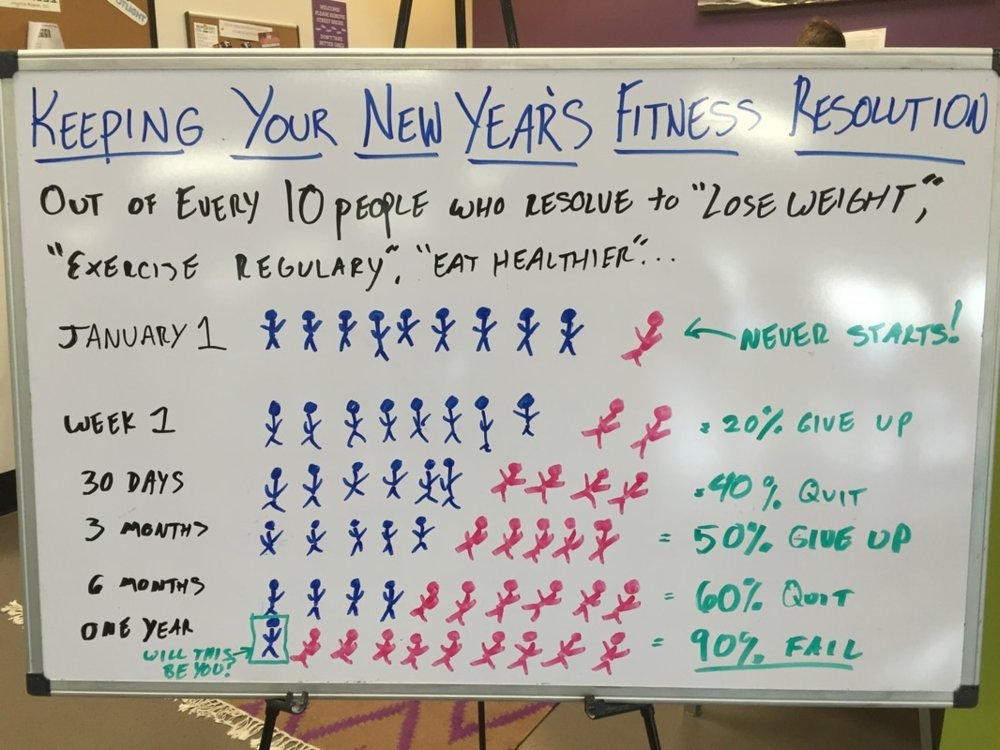 WELCOME!
PLEASE REMOVE
STREET SHOES.
DON'T TAKE
BETTER ONES!
KEEPING YOUR NEW YEAR'S FITNESS RESOLUTION
OUT OF EVERY 10 PEOPLE WHO RESOLVE TO "LOSE WEIGHT",
"EXERCISE REGULARY", "EAT HEALTHIER"...
JANUARY 1 ← NEVER STARTS!
WEEK 1 = 20% GIVE UP
30 DAYS = 40% QUIT
3 MONTHS = 50% GIVE UP
6 MONTHS = 60% QUIT
ONE YEAR = 90% FAIL
WILL THIS →
BE YOU?